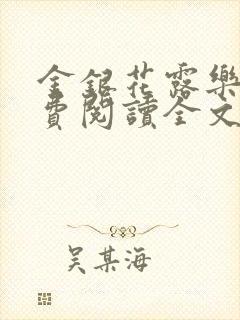 金銀花露樂
費閱讀全文
吴某海